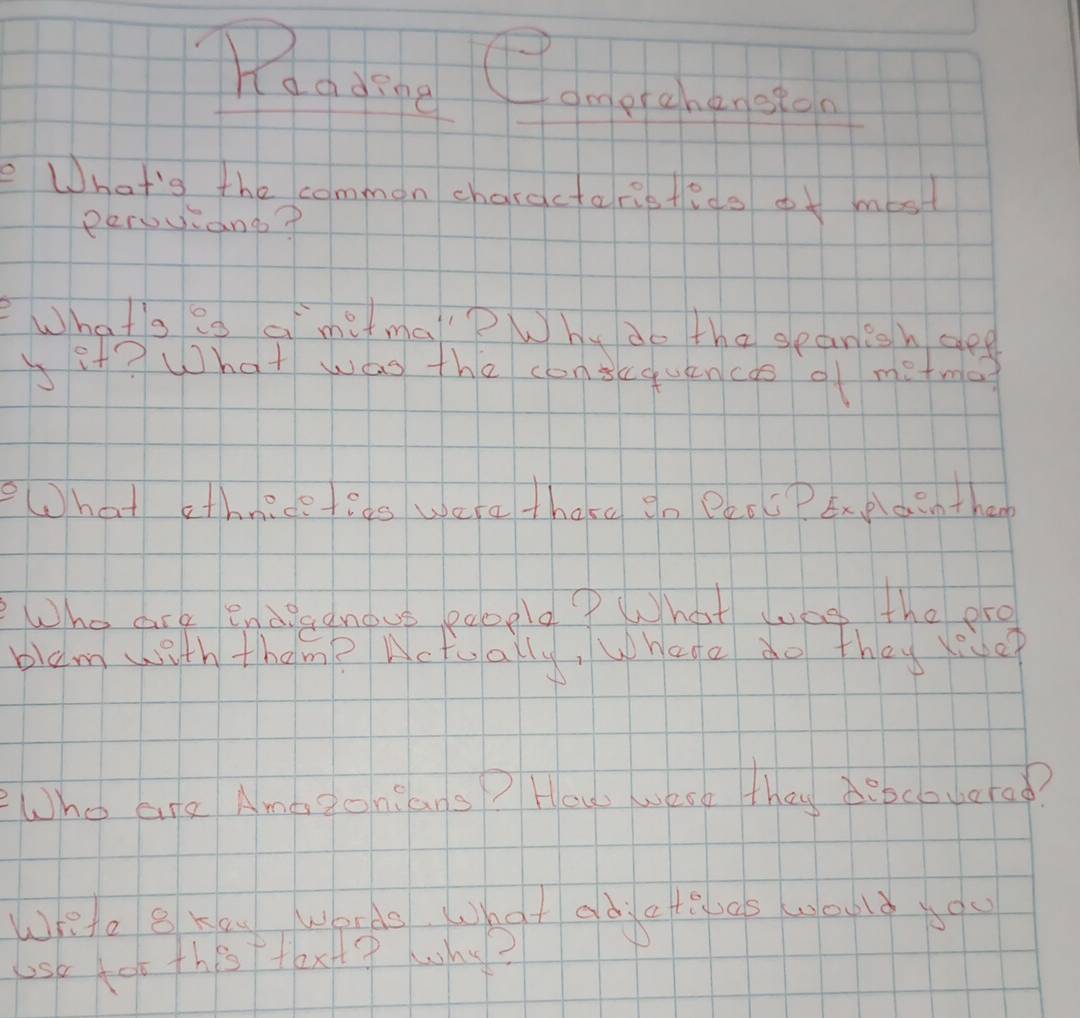 Reading Comprehension
What's the common characteristics of most
peruvians?
What's is a "mitma"? Why do the spanish
y it? What was the consequences of mitma?
What ethnicities were there in Perú? Explain them
Who are indigenous people? What was the pro
blem with them? Actually, Where do they live?
Who are Amazonians? How were they discovered?
Write 8 key words. What adjetives would you
use for this text? why?